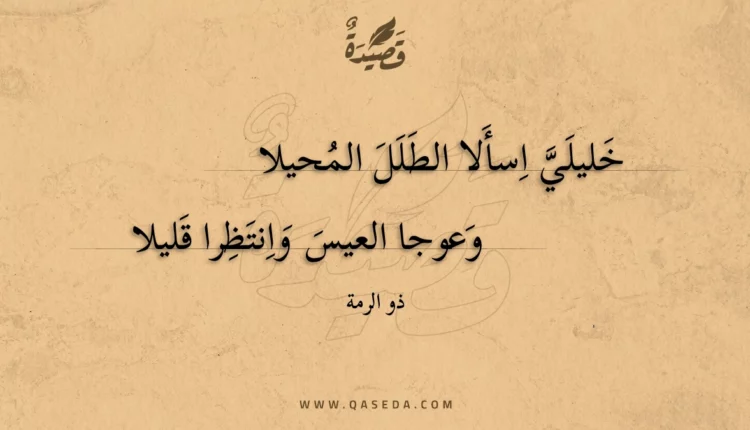 قَصِيْدَةٌ
خَليلَيَّ اِسأَلا الطَلَلَ المُحيلا
وَعوجا العيسَ وَاِنتَظِرا قَليلا
ذو الرمة
WWW.QASEDA.COM